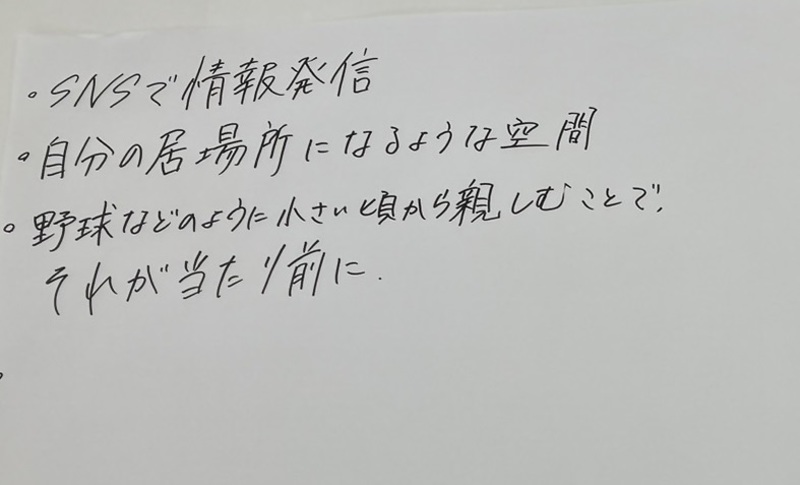 。SNSで情報発信
。自分の居場所になるような空間
。野球などのように小さい頃から親しむことで、
それが当たり前に.